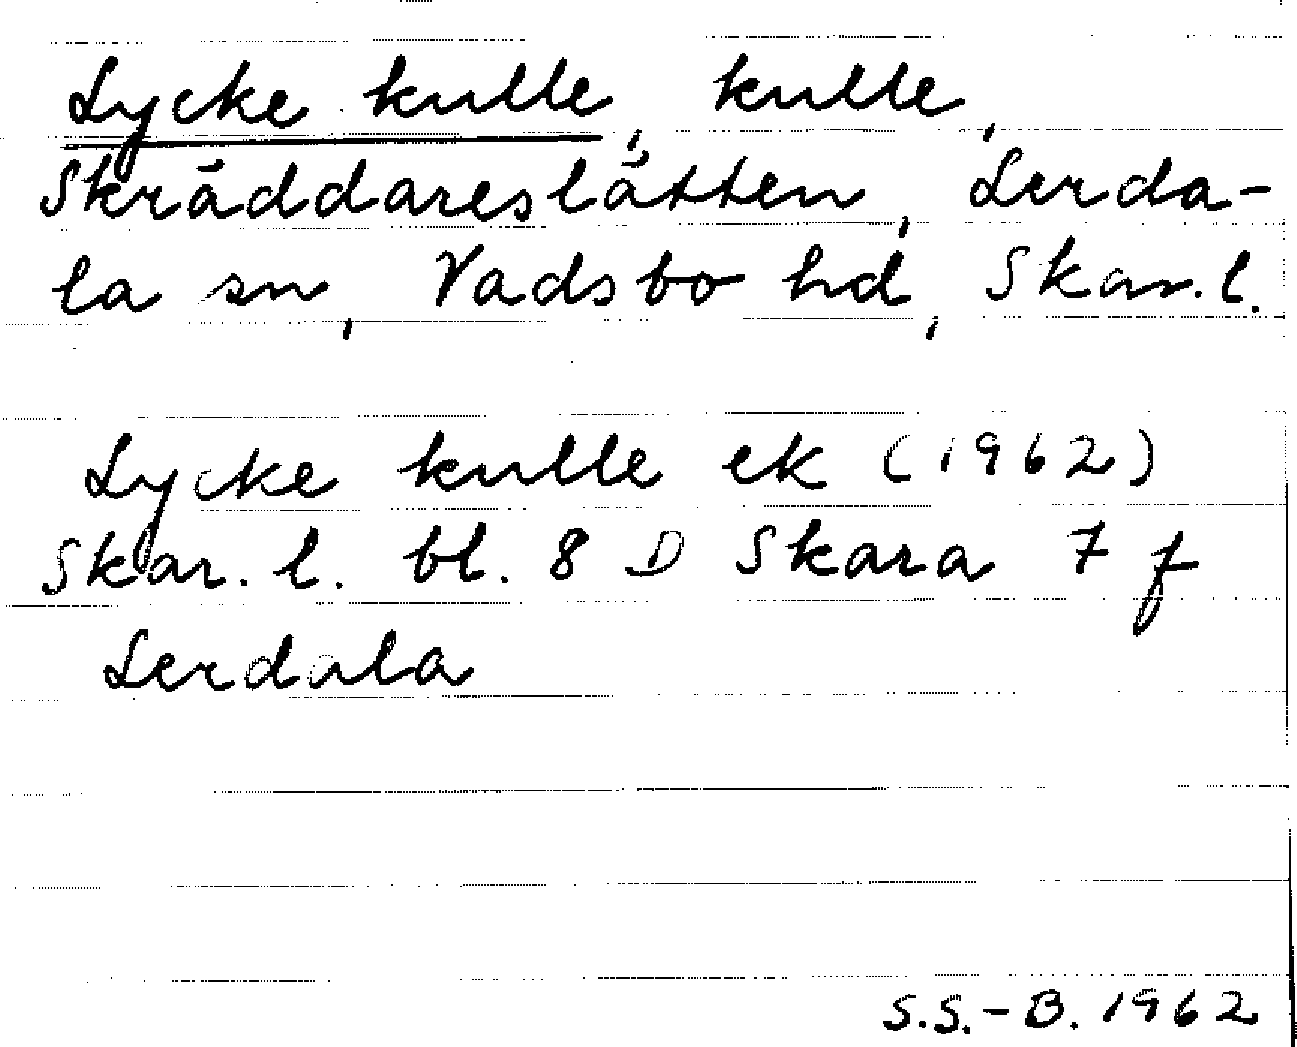 Lycke kulle, kulle,
Skräddareslätten, Lerda-
la sn, Vadsbo hd, Skar. l.
Lycke kulle ek (1962)
Skar. l. bl. 8 D Skara 7 f
Lerdala
S.S.-B. 1962